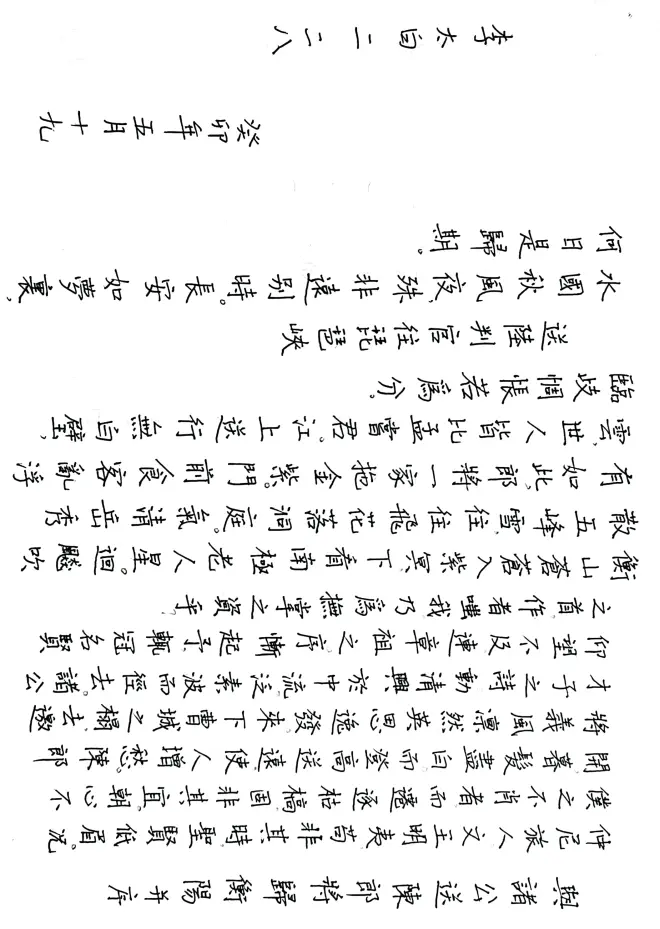 與諸公送陳郎將歸衡陽并序
仲尼旅人文王明夷苟非其時,聖賢低眉。況
僕之不肖者,而遷逐枯槁固非其宜,朝心不
開暮髮盡白而登高送遠,使人增愁。陳郎
將義風凛然英思逸發。來下曹城之榻,去邀
才子之詩動清興於中流泛素波而徑去。諸公
仰望不及連章祖之序慚起予輒冠名賢
之首作者嗤我乃為撫掌之資乎
衡山蒼蒼入紫冥,下看南極老人星。迴飈吹
散五峰雪,往往飛花落洞庭。氣清岳秀
有如此,郎將一家拖金紫。門前食客亂浮
雲,世人皆比孟嘗君。江上送行無白璧,
臨歧惆悵若為分。
送陸判官往琵琶峽
水國秋風夜,殊非遠別時。長安如夢裏,
何日是歸期。
癸卯年五月十九
李太白二二八